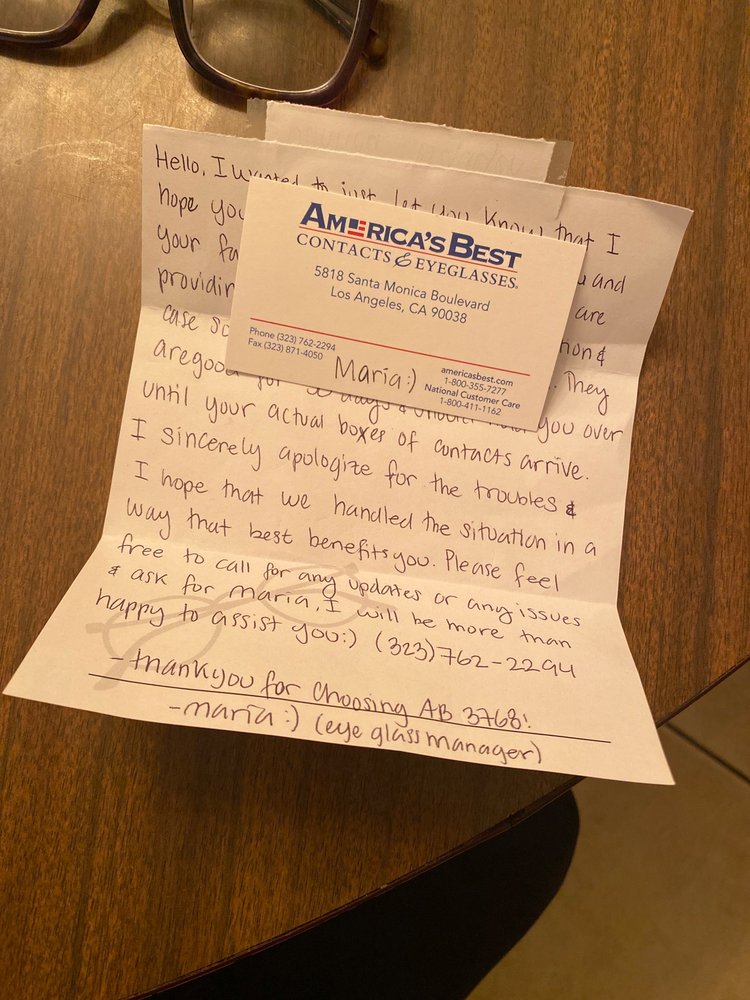 Hello, I wanted to just let you know that I
hope you
your fa and
providin are
case so
They
are good for 30 days & should you over
until your actual boxes of contacts arrive.
I sincerely apologize for the troubles &
I hope that we handled the situation in a
way that best benefits you. Please feel
free to call for any updates or any issues
& ask for maria. I will be more than
happy to assist you:) (323)762-2294
- thankyou for choosing AB 3768!
- maria :) (eye glass manager)
AMERICA'S BEST
CONTACTS & EYEGLASSES.
5818 Santa Monica Boulevard
Los Angeles, CA 90038
Phone (323) 762-2294
Fax (323) 871-4050
Maria:)
americasbest.com
1-800-355-7277
National Customer Care
1-800-411-1162